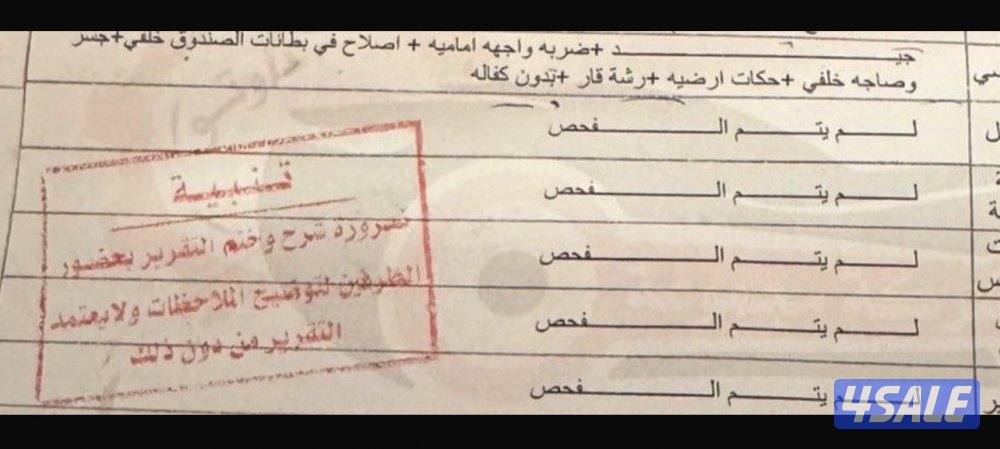 جيــــــــــد +ضربه واجهه اماميه + اصلاح في بطانات الصندوق خلفي+جسر
وصاجه خلفي +حكات ارضيه +رشة قار +بدون كفاله
لــــم يتــــم الـــــــــفحص
لــــم يتــــم الـــــــــفحص
لــــم يتــــم الـــــــــفحص
لــــم يتــــم الـــــــــفحص
لــــم يتــــم الـــــــــفحص
تنبيـة
ضرورة شرح وختم التقرير بحضور
الطرفين لتوضيح الملاحظات ولايعتمد
التقرير من دون ذلك
4SALE